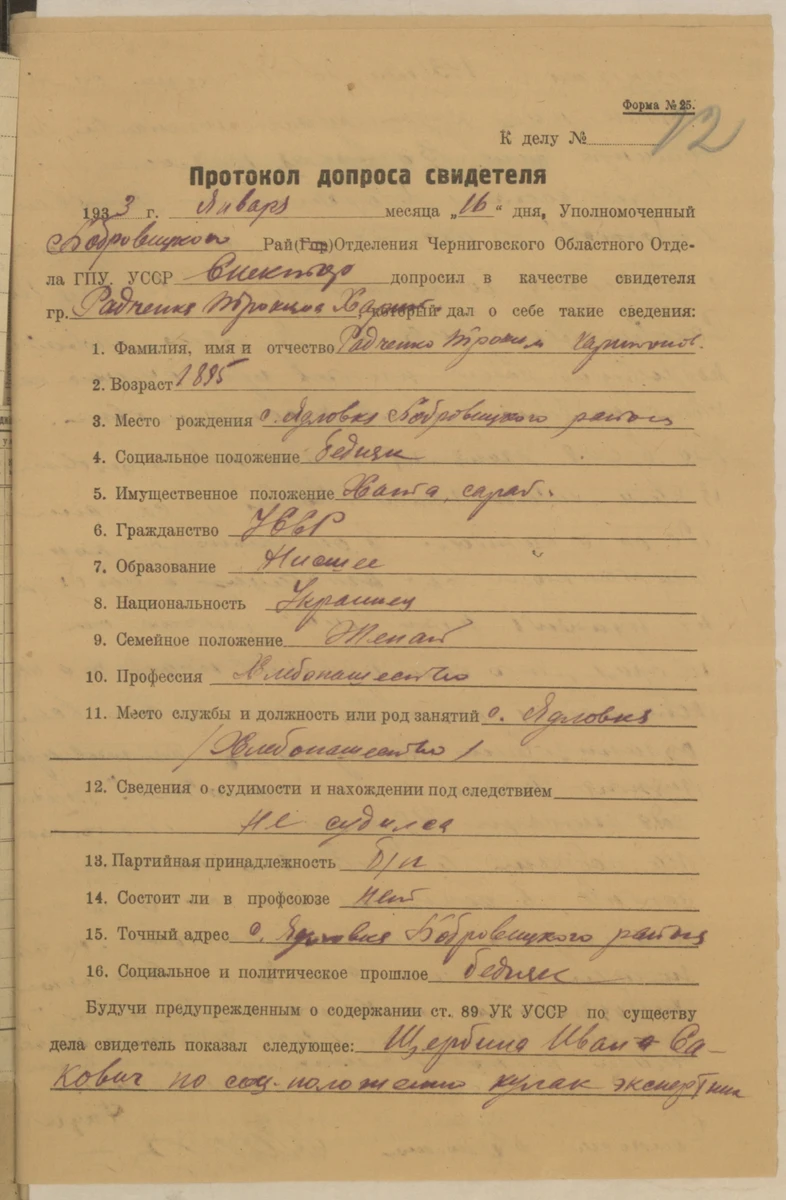 Форма № 25.
К делу № 12
Протокол допроса свидетеля
1933 г. Января месяца „16“ дня, Уполномоченный
Бобровицкого Рай(Гор)Отделения Черниговского Областного Отде-
ла ГПУ УССР Спектор допросил в качестве свидетеля
гр. Радченка Трохима который дал о себе такие сведения:
1. Фамилия, имя и отчество Радченко Трохим Харитонов.
2. Возраст 1895
3. Место рождения с. Ядловка Бобровицкого района
4. Социальное положение бедняк
5. Имущественное положение Хата, сарай.
6. Гражданство УССР
7. Образование Нисшее
8. Национальность Украинец
9. Семейное положение Женат
10. Профессия Хлебопашество
11. Место службы и должность или род занятий с. Ядловка
/Хлебопашество/
12. Сведения о судимости и нахождении под следствием
не судился
13. Партийная принадлежность б/п
14. Состоит ли в профсоюзе нет
15. Точный адрес с. Ядловка Бобровицкого района
16. Социальное и политическое прошлое бедняк
Будучи предупрежденным о содержании ст. 89 УК УССР по существу
дела свидетель показал следующее: Щербина Иван Са-
кович по соц-положению кулак экспертник